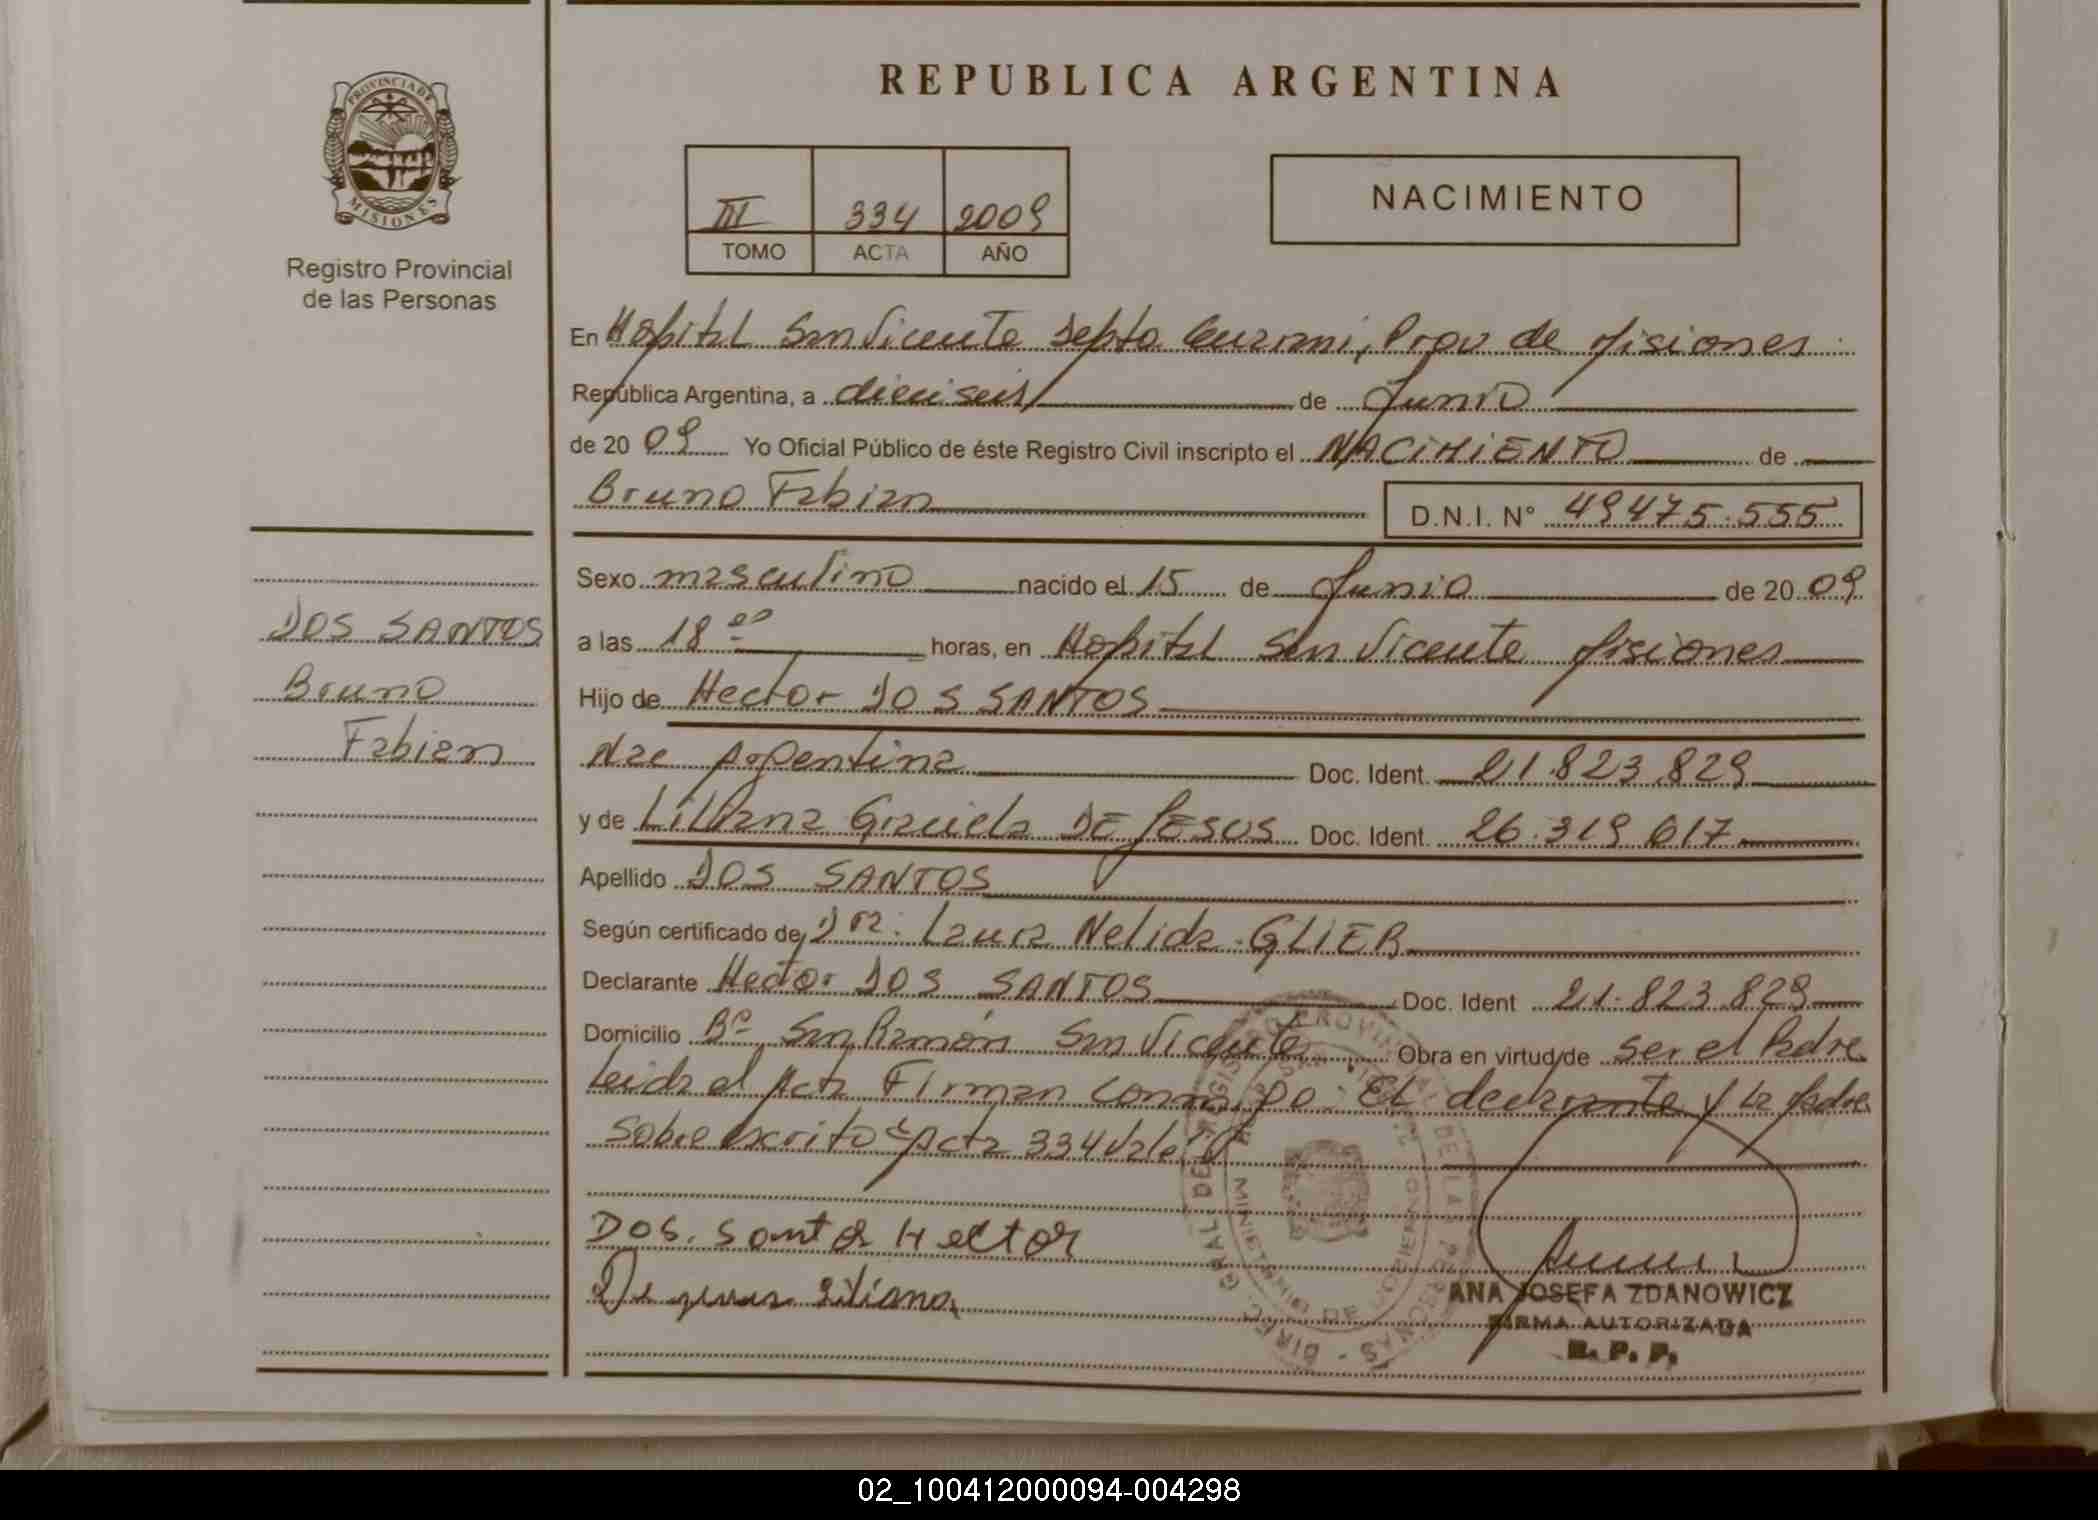 REPUBLICA ARGENTINA
PROVINCIA DE
MISIONES
Registro Provincial
de las Personas
III 334 2009
TOMO ACTA AÑO
NACIMIENTO
En Hospital San Vicente Depto Guarani, Prov de Misiones
República Argentina, a dieciseis de Junio
de 20 09 Yo Oficial Público de éste Registro Civil inscripto el NACIMIENTO de
Bruno Fabian D.N.I. N° 49475.555
Sexo masculino nacido el 15 de Junio de 20 09
a las 18 00 horas, en Hospital San Vicente Misiones
Hijo de Hector DOS SANTOS
Nac Argentina Doc. Ident. 21.823.829
y de Liliana Graciela DE JESUS Doc. Ident. 26.319.617
Apellido DOS SANTOS
Según certificado de Dra. Laura Nelida GLIER
Declarante Hector DOS SANTOS Doc. Ident 21.823.829
Domicilio Bº San Ramón San Vicente Obra en virtud de ser el Padre
Leida el Acta Firman conmigo El declarante y la Madre
Sobre escrito Acta 334 Vale
DOS SANTOS
Bruno
Fabian
Dos. Santos Hector
De jesus Liliana
ANA JOSEFA ZDANOWICZ
FIRMA AUTORIZADA
R. P. P.
02_100412000094-004298